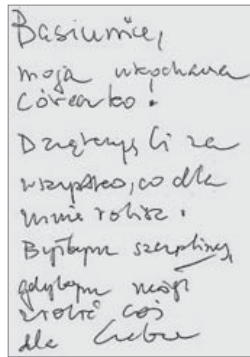 Basiuniu,
moja ukochana
córeczko!
Dziękuję Ci za
wszystko, co dla
mnie robisz.
Byłbym szczęśliwy,
gdybym mógł
zrobić coś
dla Ciebie